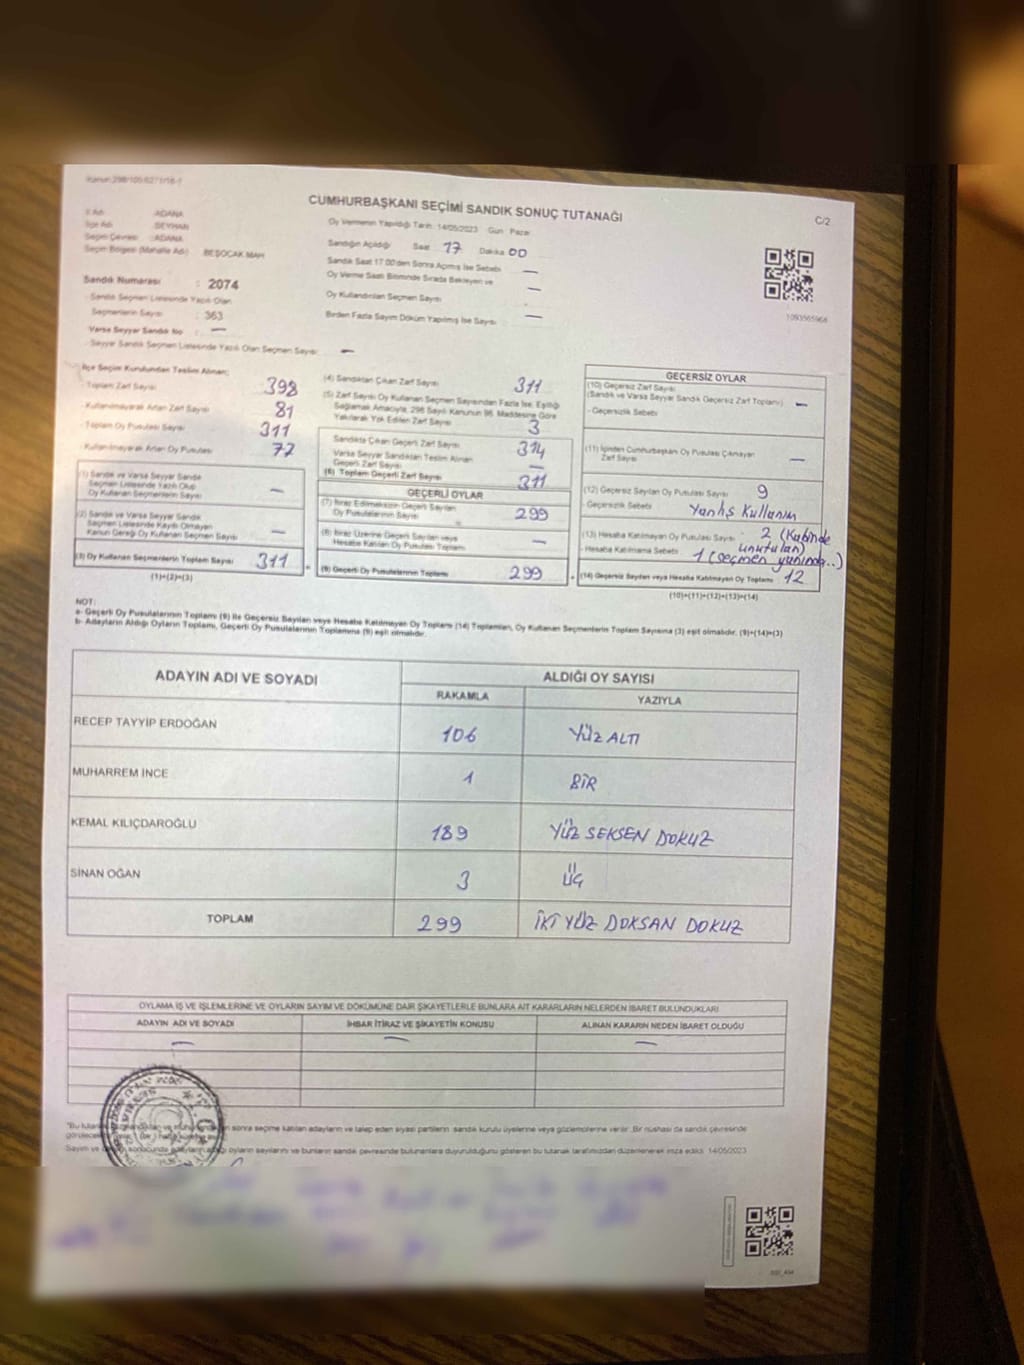 Kanun:298/100-6271/16-1
CUMHURBAŞKANI SEÇİMİ SANDIK SONUÇ TUTANAĞI
C/2
İl Adı : ADANA
İlçe Adı : SEYHAN
Seçim Çevresi : ADANA
Seçim Bölgesi (Mahalle Adı) : BEŞOCAK MAH
Sandık Numarası : 2074
Sandık Seçmen Listesinde Yazılı Olan
Seçmenlerin Sayısı : 363
Varsa Seyyar Sandık No : —
Seyyar Sandık Seçmen Listesinde Yazılı Olan Seçmen Sayısı: —
Oy Vermenin Yapıldığı Tarih: 14/05/2023 Gün: Pazar
Sandığın Açıldığı Saat 17 Dakika 00
Sandık Saat 17.00'den Sonra Açılmış İse Sebebi —
Oy Verme Saati Bitiminde Sırada Bekleyen ve
Oy Kullandırılan Seçmen Sayısı —
Birden Fazla Sayım Döküm Yapılmış İse Sayısı —
1093565964
İlçe Seçim Kurulundan Teslim Alınan;
Toplam Zarf Sayısı 392
Kullanılmayarak Artan Zarf Sayısı 81
Toplam Oy Pusulası Sayısı 311
Kullanılmayarak Artan Oy Pusulası 77
(1) Sandık ve Varsa Seyyar Sandık
Seçmen Listesinde Yazılı Olup
Oy Kullanan Seçmenlerin Sayısı —
(2) Sandık ve Varsa Seyyar Sandık
Seçmen Listesinde Kaydı Olmayan
Kanun Gereği Oy Kullanan Seçmen Sayısı —
(3) Oy Kullanan Seçmenlerin Toplam Sayısı 311
(1)+(2)=(3)
(4) Sandıktan Çıkan Zarf Sayısı 311
(5) Zarf Sayısı Oy Kullanan Seçmen Sayısından Fazla İse, Eşitliği
Sağlamak Amacıyla, 298 Sayılı Kanunun 98. Maddesine Göre
Yakılarak Yok Edilen Zarf Sayısı 3
Sandıkta Çıkan Geçerli Zarf Sayısı 314
Varsa Seyyar Sandıktan Teslim Alınan
Geçerli Zarf Sayısı —
(6) Toplam Geçerli Zarf Sayısı 311
GEÇERLİ OYLAR
(7) İtiraz Edilmeksizin Geçerli Sayılan
Oy Pusulalarının Sayısı 299
(8) İtiraz Üzerine Geçerli Sayılan veya
Hesaba Katılan Oy Pusulaları Toplamı —
(9) Geçerli Oy Pusulalarının Toplamı 299
GEÇERSİZ OYLAR
(10) Geçersiz Zarf Sayısı
(Sandık ve Varsa Seyyar Sandık Geçersiz Zarf Toplamı) —
- Geçersizlik Sebebi
(11) İçinden Cumhurbaşkanı Oy Pusulası Çıkmayan
Zarf Sayısı —
(12) Geçersiz Sayılan Oy Pusulası Sayısı 9
- Geçersizlik Sebebi Yanlış Kullanım
(13) Hesaba Katılmayan Oy Pusulası Sayısı 2 (Kabinde
unutulan)
- Hesaba Katılmama Sebebi 1 (seçmen yanında..)
(14) Geçersiz Sayılan veya Hesaba Katılmayan Oy Toplamı 12
(10)+(11)+(12)+(13)=(14)
NOT:
a- Geçerli Oy Pusulalarının Toplamı (9) ile Geçersiz Sayılan veya Hesaba Katılmayan Oy Toplamı (14) Toplamları, Oy Kullanan Seçmenlerin Toplam Sayısına (3) eşit olmalıdır. (9)+(14)=(3)
b- Adayların Aldığı Oyların Toplamı, Geçerli Oy Pusulalarının Toplamına (9) eşit olmalıdır.
ADAYIN ADI VE SOYADI ALDIĞI OY SAYISI
RAKAMLA YAZIYLA
RECEP TAYYİP ERDOĞAN 106 YÜZ ALTI
MUHARREM İNCE 1 BİR
KEMAL KILIÇDAROĞLU 189 YÜZ SEKSEN DOKUZ
SİNAN OĞAN 3 ÜÇ
TOPLAM 299 İKİ YÜZ DOKSAN DOKUZ
OYLAMA İŞ VE İŞLEMLERİNE VE OYLARIN SAYIM VE DÖKÜMÜNE DAİR ŞİKAYETLERLE BUNLARA AİT KARARLARIN NELERDEN İBARET BULUNDUKLARI
ADAYIN ADI VE SOYADI İHBAR İTİRAZ VE ŞİKAYETİN KONUSU ALINAN KARARIN NEDEN İBARET OLDUĞU
— — —
sonra seçime katılan adayların ve talep eden siyasi partilerin sandık kurulu üyelerine veya gözlemcilerine verilir. Bir nüshası da sandık çevresinde
Sayım ve oyların sayılarını ve bunların sandık çevresinde bulunanlara duyurulduğunu gösteren bu tutanak tarafımızdan düzenlenerek imza edildi. 14/05/2023